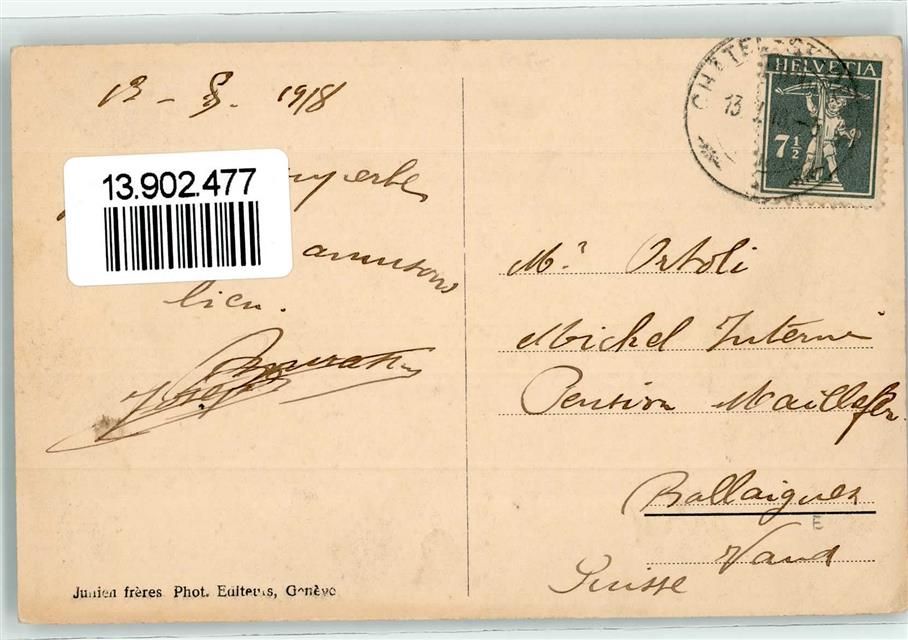 13 - 8. 1918
13.902.477
amusons
bien.
Joseph
Junien frères Phot. Editeurs, Genève
CHÂTEL-ST
13
HELVETIA
7 1/2
Mr Ortoli
Michel Interné
Pension Maillefer
Ballaigues
E
Vaud
Suisse